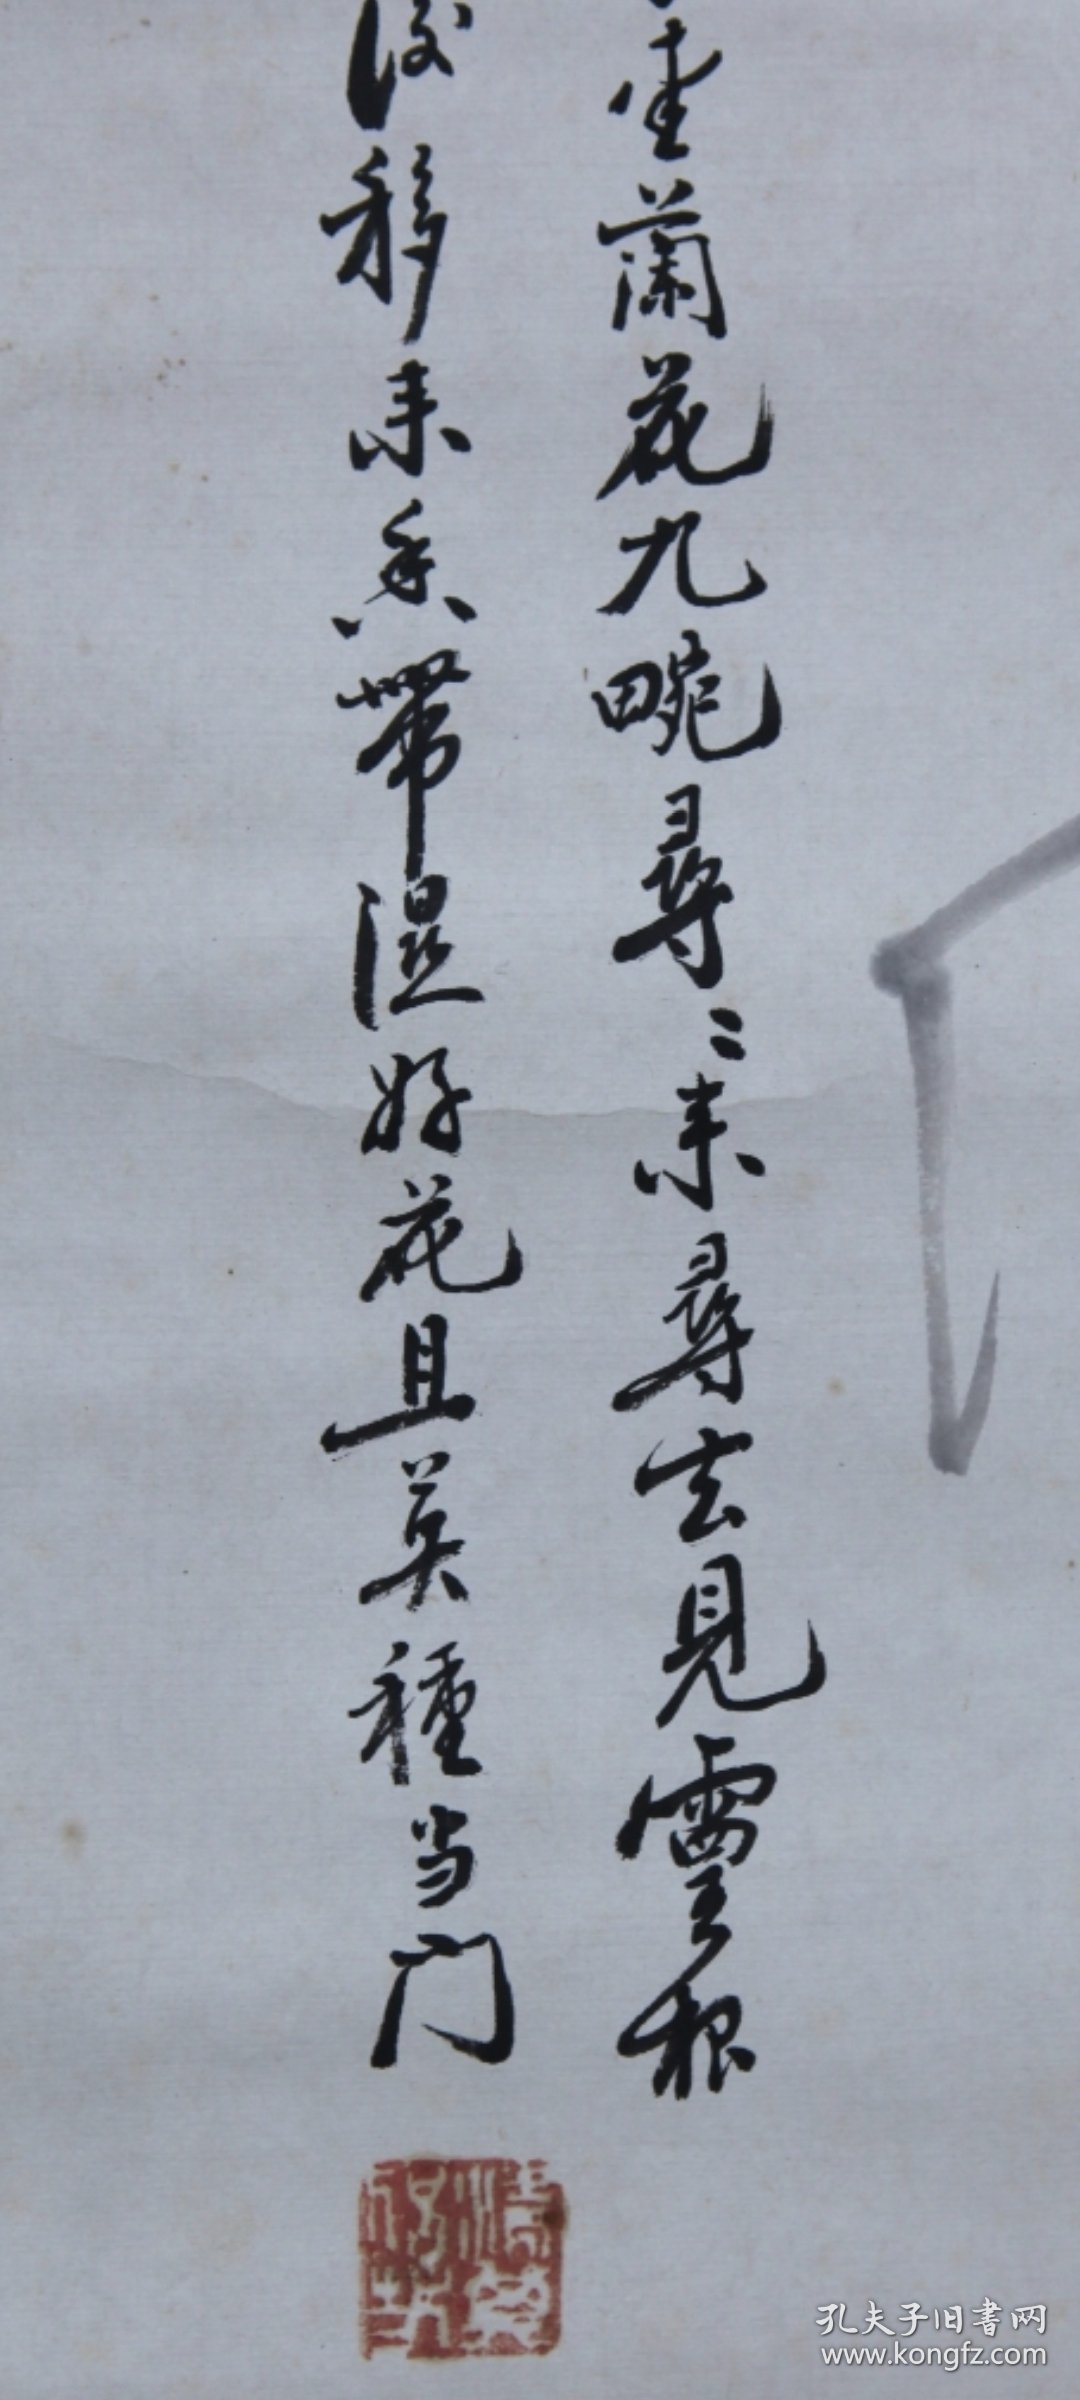 蘭花九畹尋〻来尋去見靈根
移来香带濕好花且莫種当门
孔夫子旧书网
www.kongfz.com